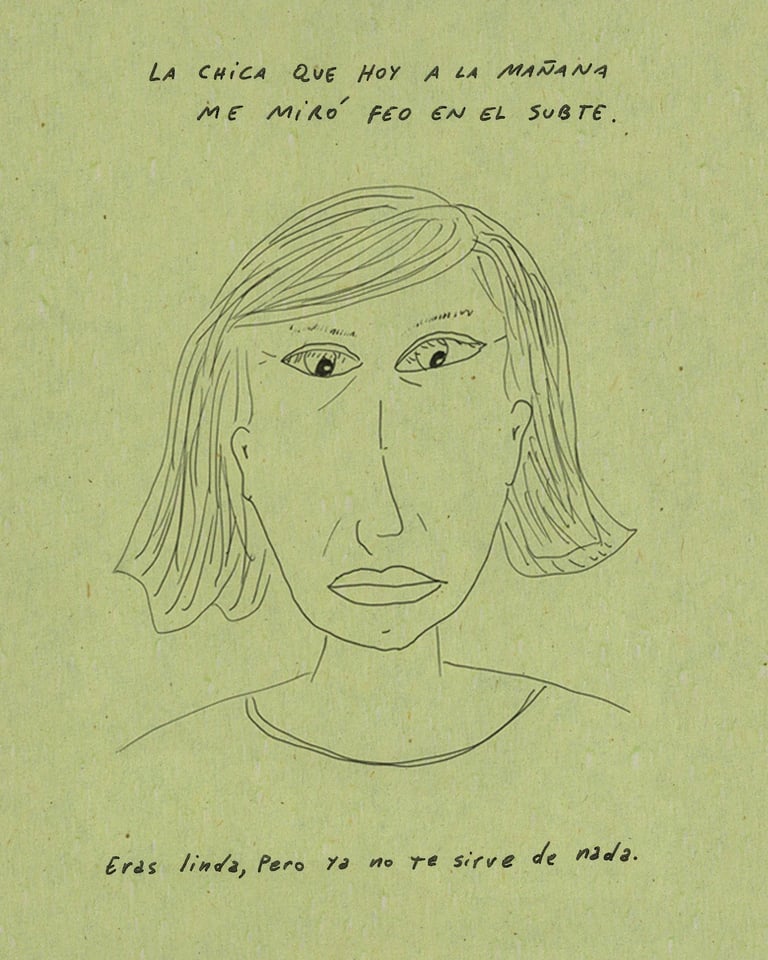 LA CHICA QUE HOY A LA MAÑANA
ME MIRÓ FEO EN EL SUBTE.
Eras linda, Pero ya no te sirve de nada.